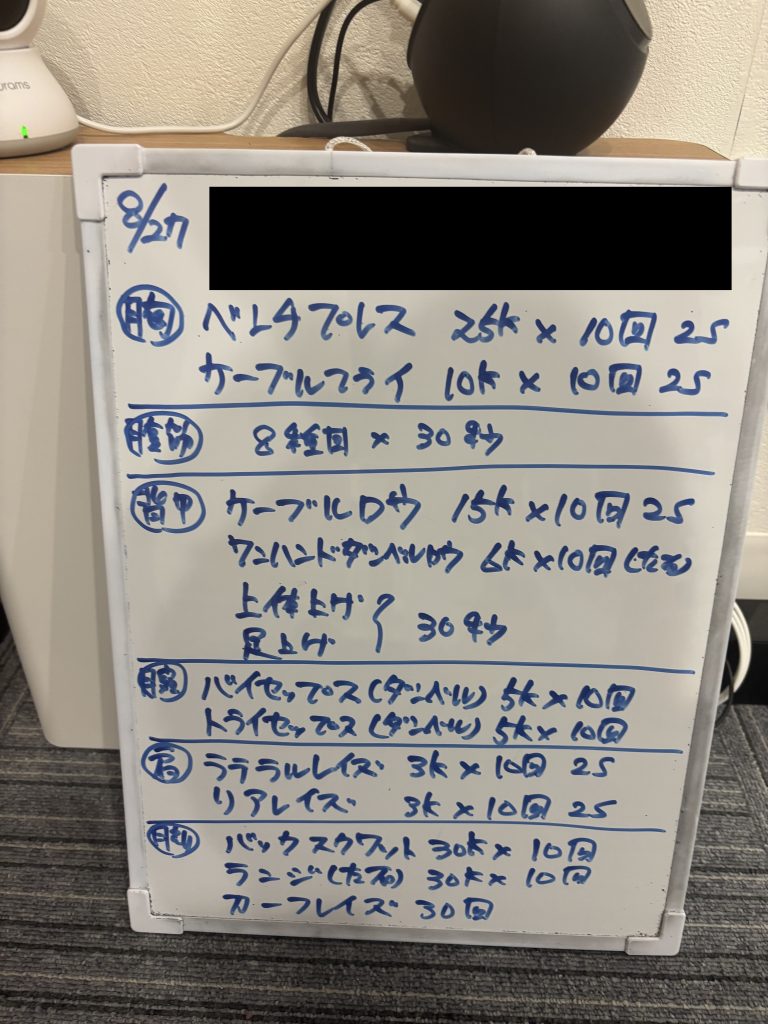 8/27
胸 ベンチプレス 25k × 10回 2S
ケーブルフライ 10k × 10回 2S
腹筋 8種目 × 30秒
背中 ケーブルロウ 15k × 10回 2S
ワンハンドダンベルロウ 6k × 10回 (左右)
上体上げ
足上げ } 30秒
腕 バイセップス (ダンベル) 5k × 10回
トライセップス (ダンベル) 5k × 10回
肩 ラテラルレイズ 3k × 10回 2S
リアレイズ 3k × 10回 2S
脚 バックスクワット 30k × 10回
ランジ (左右) 30k × 10回
カーフレイズ 30回